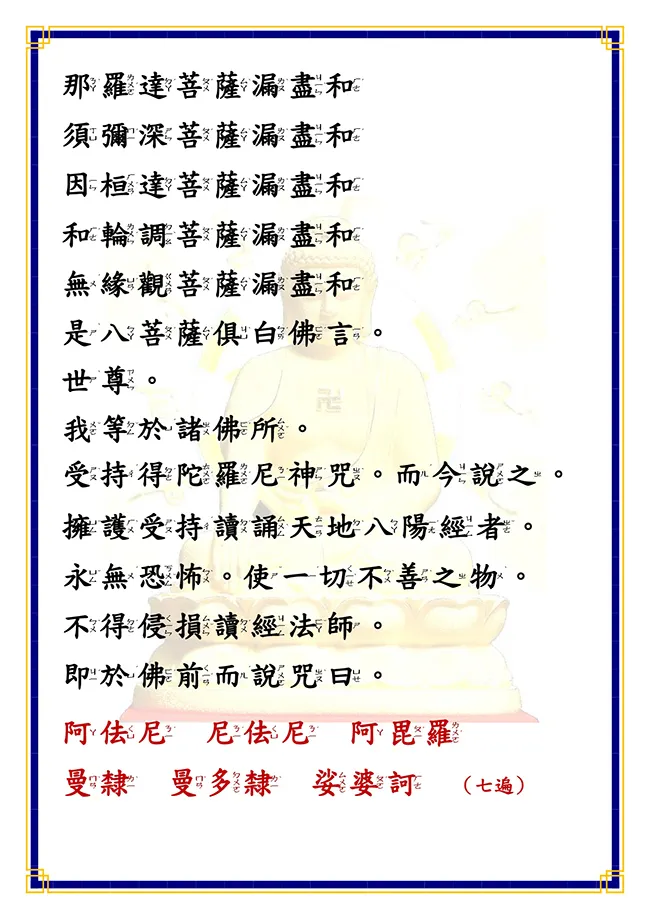 那羅達菩薩漏盡和
須彌深菩薩漏盡和
因桓達菩薩漏盡和
和輪調菩薩漏盡和
無緣觀菩薩漏盡和
是八菩薩俱白佛言。
世尊。
我等於諸佛所。
受持得陀羅尼神咒。而今說之。
擁護受持讀誦天地八陽經者。
永無恐怖。使一切不善之物。
不得侵損讀經法師。
即於佛前而說咒曰。
阿佉尼 尼佉尼 阿毘羅
曼隸 曼多隸 娑婆訶 （七遍）